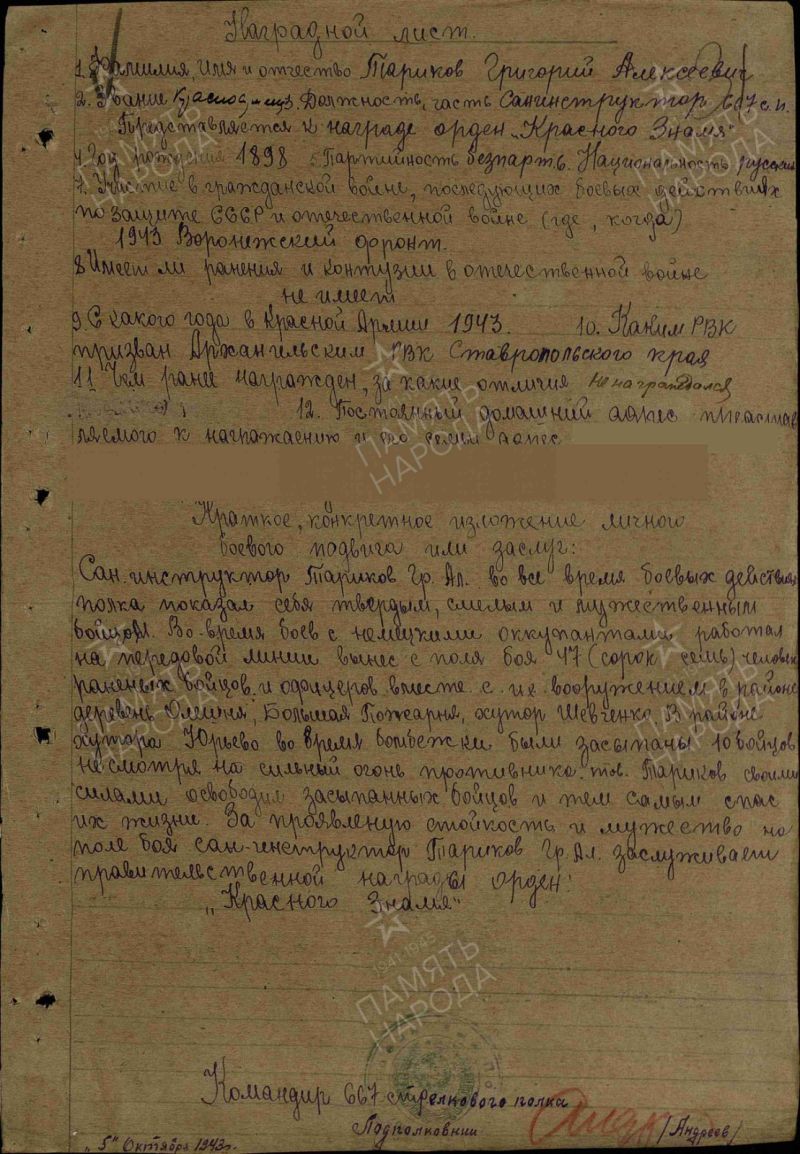 Наградной лист.
1. Фамилия, Имя и отчество Тариков Григорий Алексеевич
2. Звание Красноармеец Должность, часть Санинструктор 667 с.п.
Представляется к награде орден "Красного Знамя"
4. Год рождения 1898 5 Партийность безпарт. 6. Национальность русский
7. Участие в гражданской войне, последующих боевых действиях
по защите СССР и отечественной войне (где, когда)
1943 Воронижский фронт.
8 Имеет ли ранения и контузии в отечественной войне
не имеет
9. С какого года в Красной Армии 1943. 10. Каким РВК
призван Архангильским РВК Ставропольского края
11 Чем ранее награжден, за какие отличия не награждался
12. Постоянный домашний адрес представ
ляемого к награждению и его семьи адрес
Краткое, конкретное изложение личного
боевого подвига или заслуг:
Сан. инструктор Тариков Гр. Ал. во все время боевых действий
полка показал себя твердым, смелым и мужественным
бойцом. Во-время боев с немецкими оккупантами работал
на передовой линии вынес с поля боя 47 (сорок семь) человек
раненых бойцов и офицеров вместе с их вооружением в районе
деревень Олишня, Большая Пожарня, хутор Шевченко. В районе
хутора Юрьево во время бомбежки были засыпаны 10 бойцов
не смотря на сильный огонь противника. тов. Тариков своими
силами освободил засыпанных бойцов и тем самым спас
их жизни. За проявленую стойкость и мужество на
поле боя сан-инструктор Тариков Гр. Ал. заслуживает
правительственной награды орден:
"Красного Знамя"
Командир 667 стрелкового полка
Подполковник (Андреев)
"5" Октября 1943г.
ПАМЯТЬ
НАРОДА
1941-1945